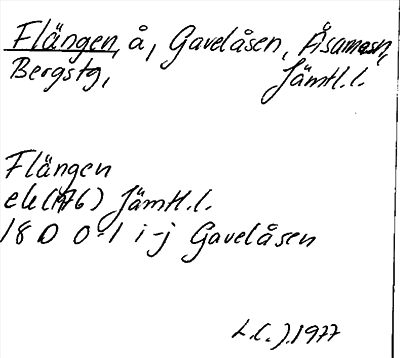 Flängen, å, Gavelåsen, Åsarnesn,
Bergstg, Jämtl.l.
Flängen
ek(176) Jämtl.l.
18 D 0-1 i-j Gavelåsen
L.C.J.1977